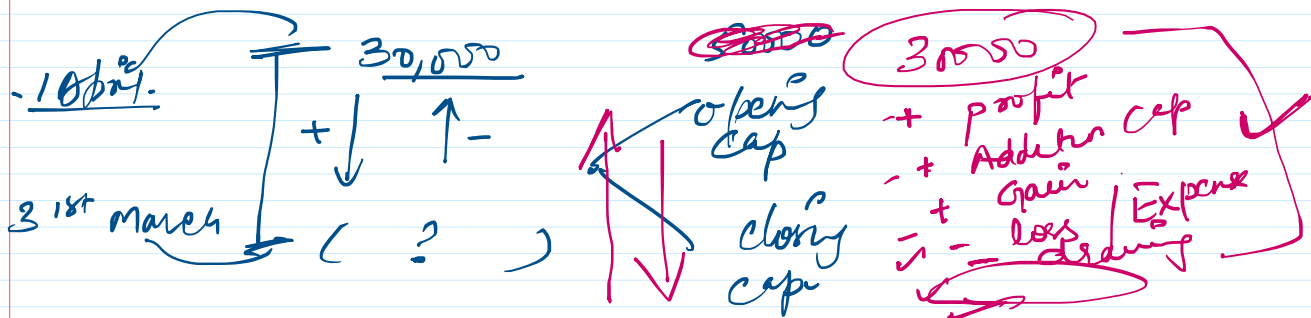 1 April.
30,000
+ -
31st March
( ? )
opening
cap
closing
cap
30000
+ profit
+ Addition cap
+ Gain
- loss / Expense
- drawing